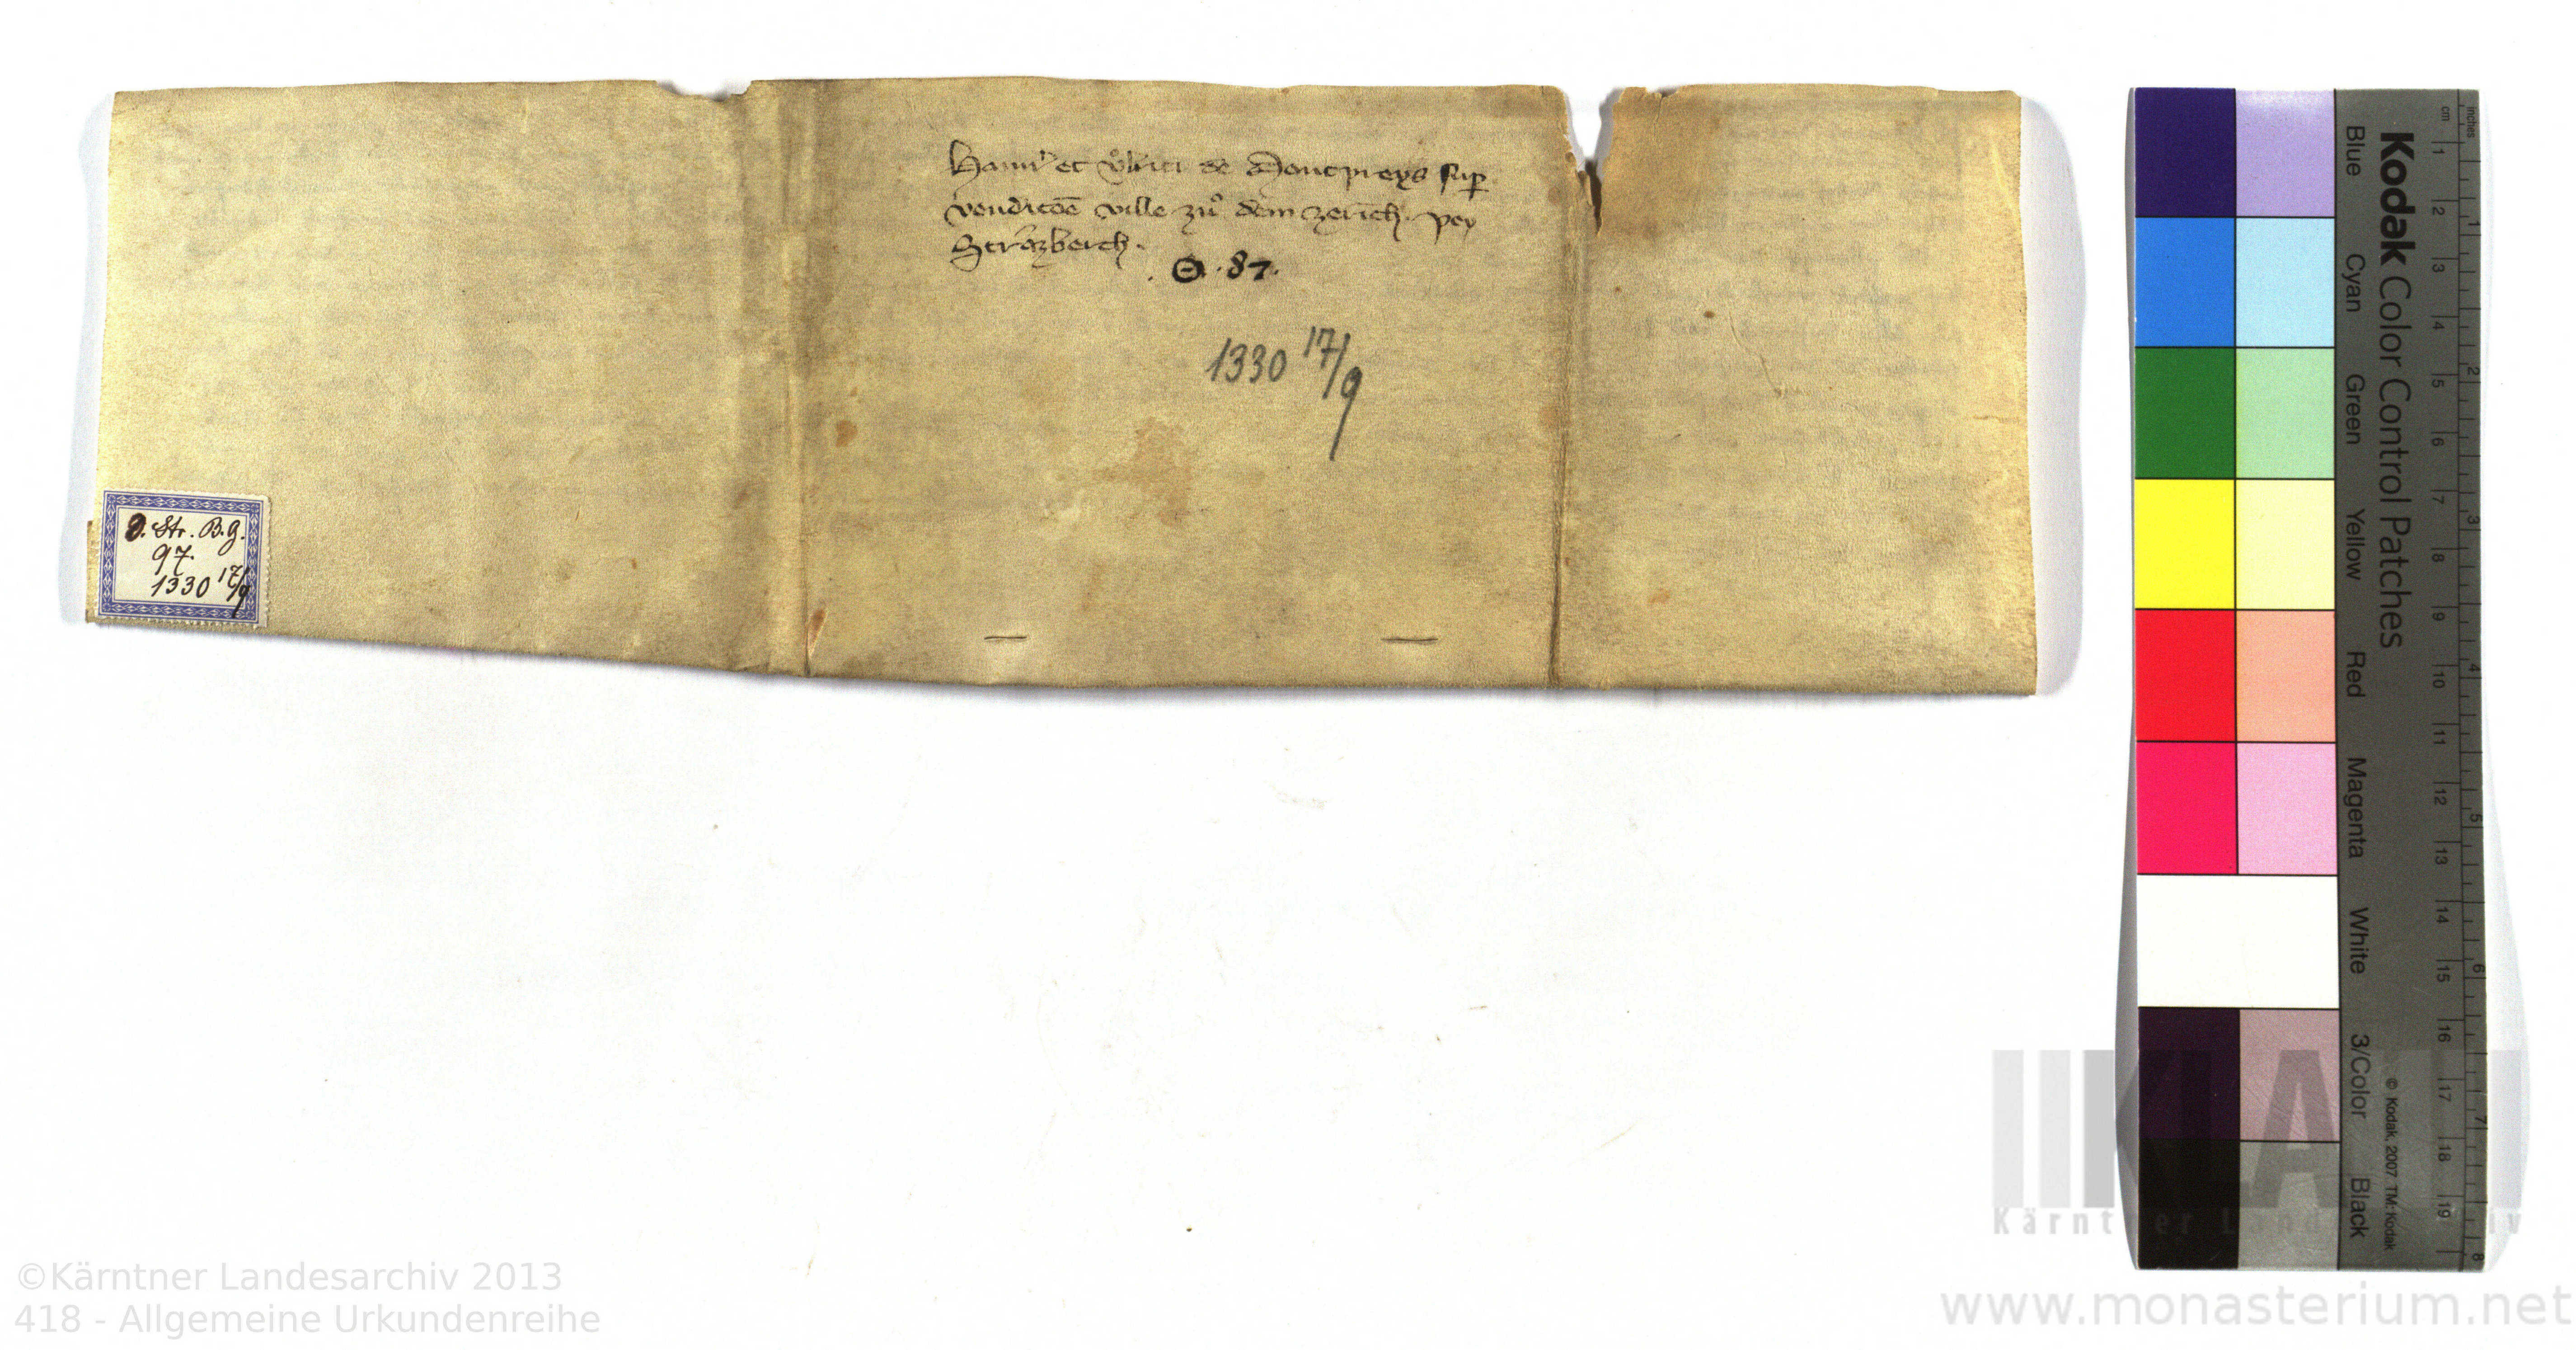 Hainr̄ et Vͦlrici de Montpreys sup̱
vendicōē ville zuͦ dem zerich. pey
Strazberch.
. Θ . 87.
1330 17/9
O. Str. B. G.
97.
1330 17/9
Kodak Color Control Patches
Blue
Cyan
Green
Yellow
Red
Magenta
White
3/Color
Black
© Kodak, 2007 TM: Kodak
inches
cm
1 2 3 4 5 6 7 8 9 10 11 12 13 14 15 16 17 18 19
1 2 3 4 5 6 7 8
KLA
Kärntner Landesarchiv
©Kärntner Landesarchiv 2013
418 - Allgemeine Urkundenreihe
www.monasterium.net